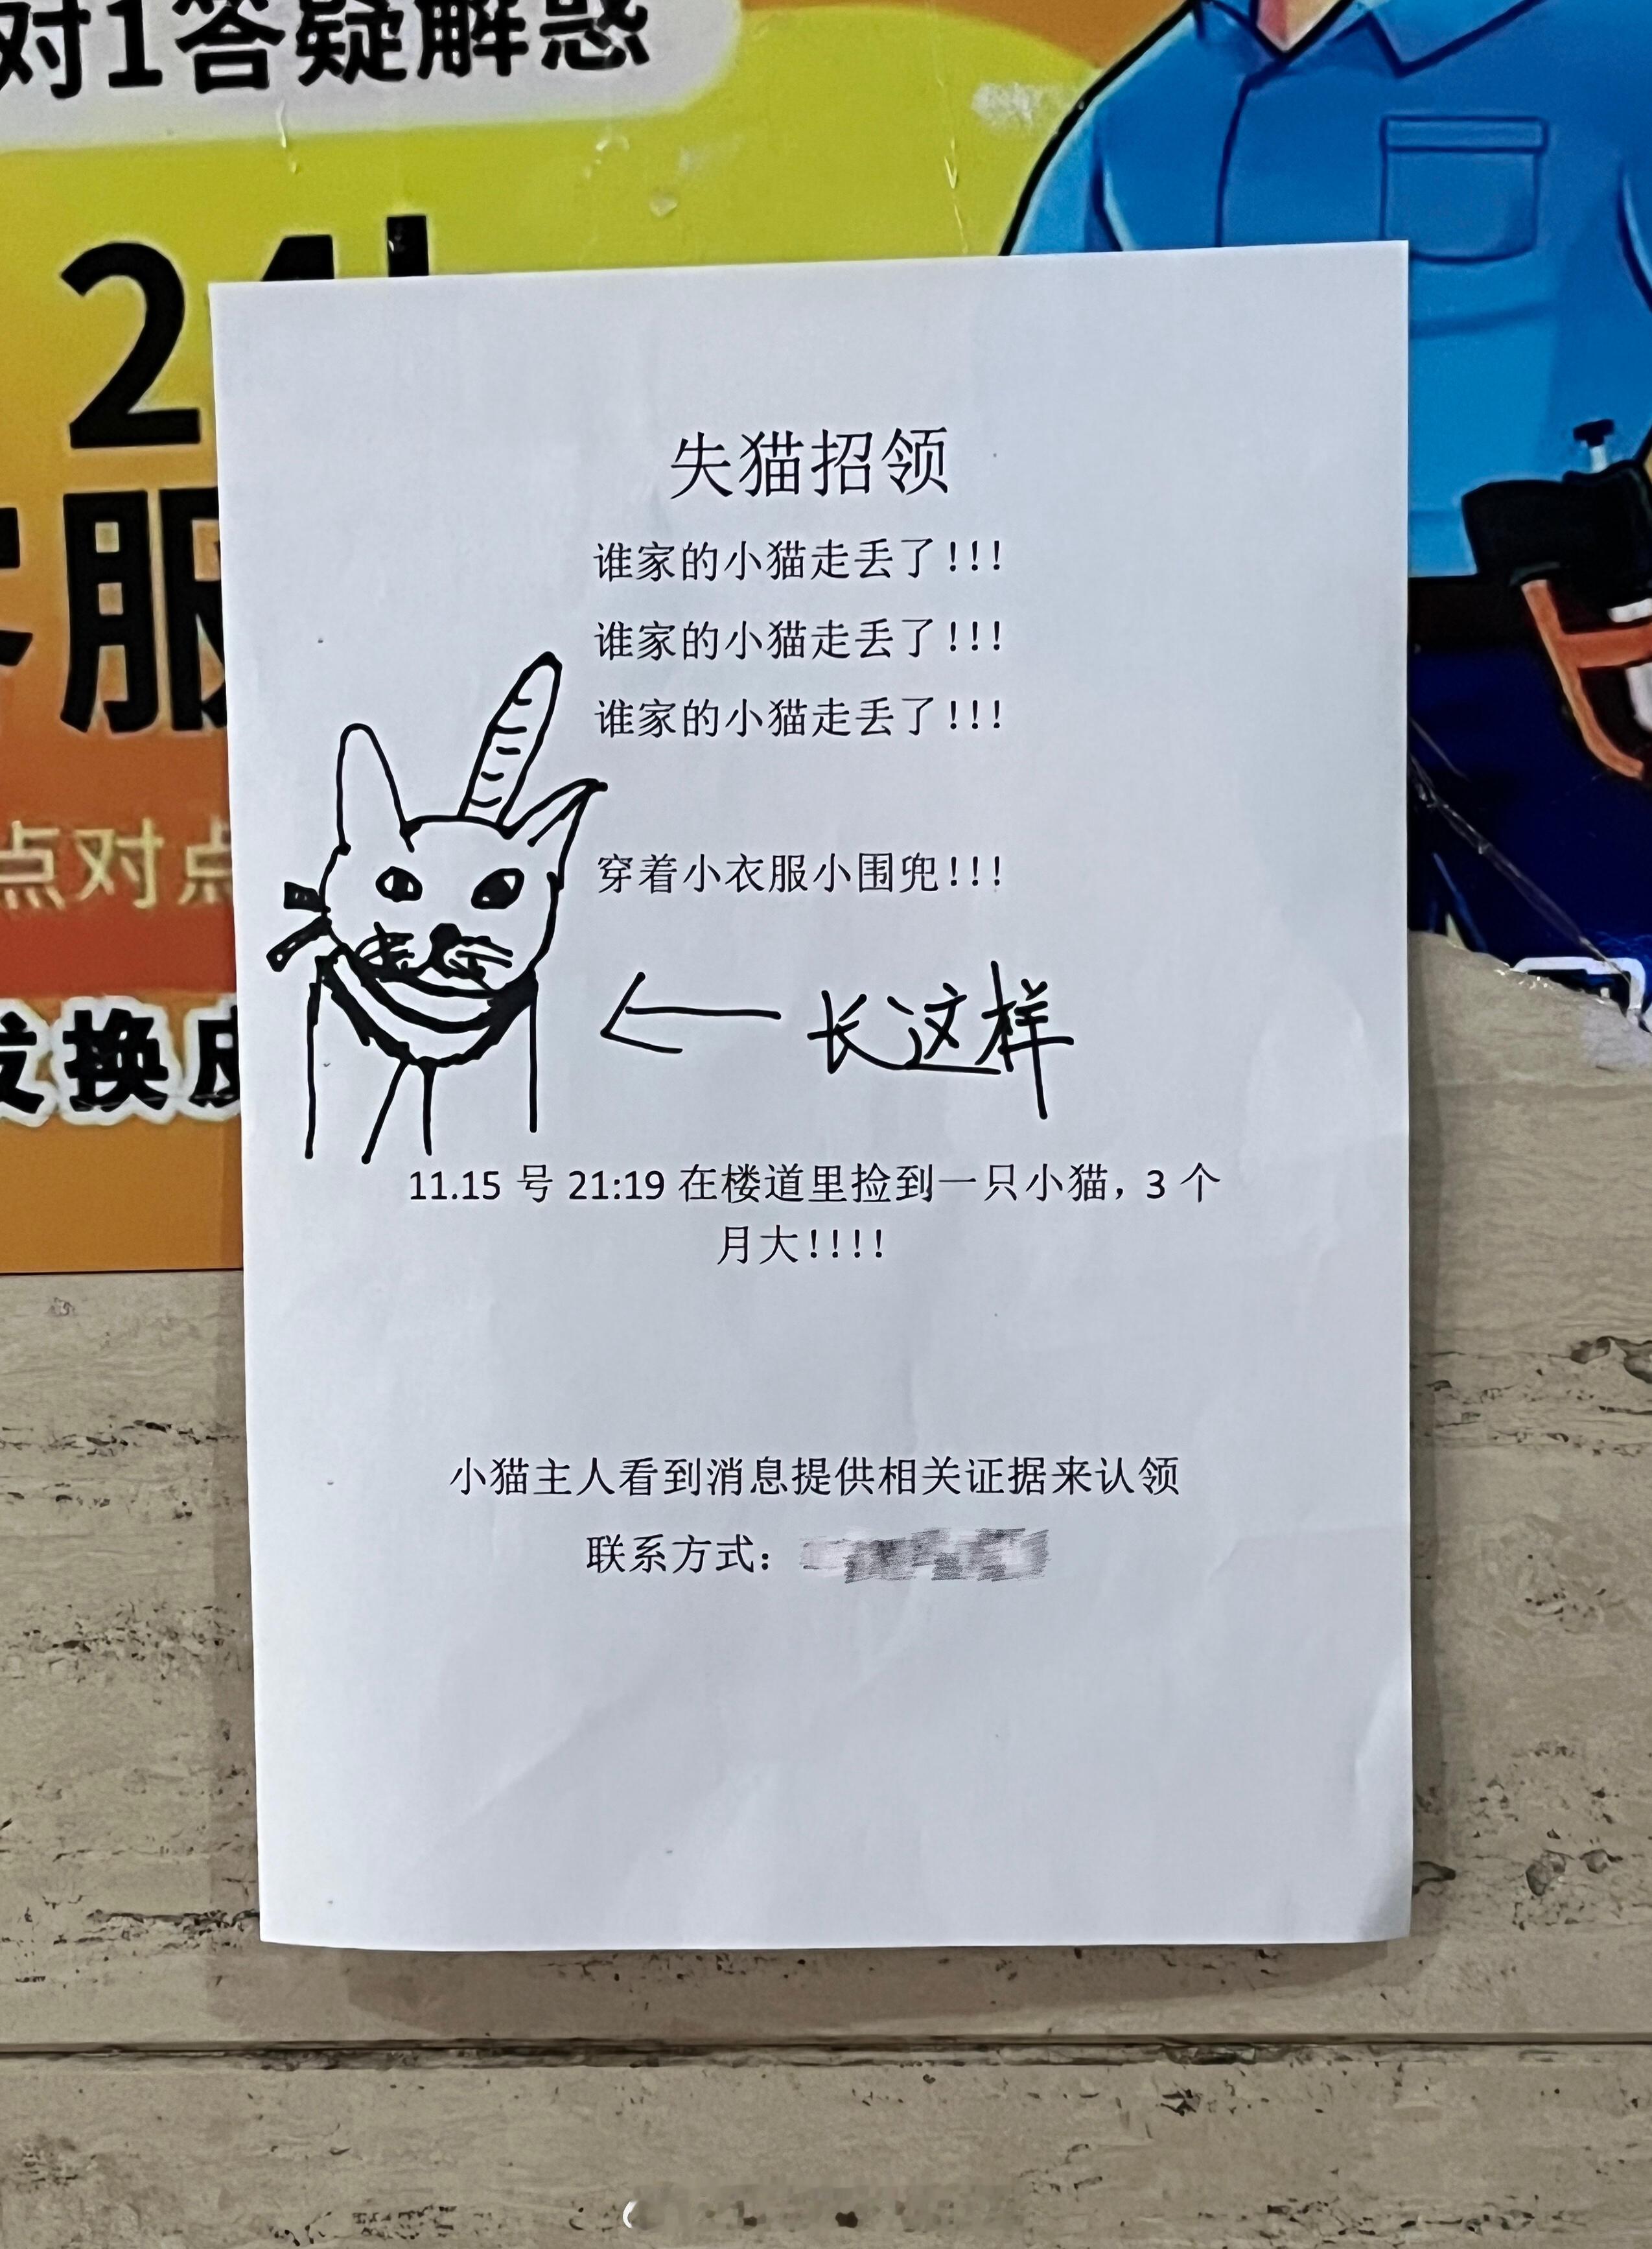 对1答疑解惑
24
服
点对点
发换
失猫招领
谁家的小猫走丢了!!!
谁家的小猫走丢了!!!
谁家的小猫走丢了!!!
穿着小衣服小围兜!!!
长这样
11.15 号 21:19 在楼道里捡到一只小猫，3 个
月大!!!!
小猫主人看到消息提供相关证据来认领
联系方式：